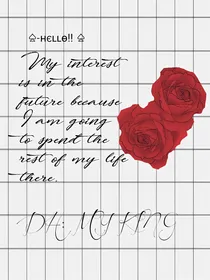 ♤-HELLO!! ♤
My interest
is in the
future because
I am going
to spend the
rest of my life
there.
DH: MY KING